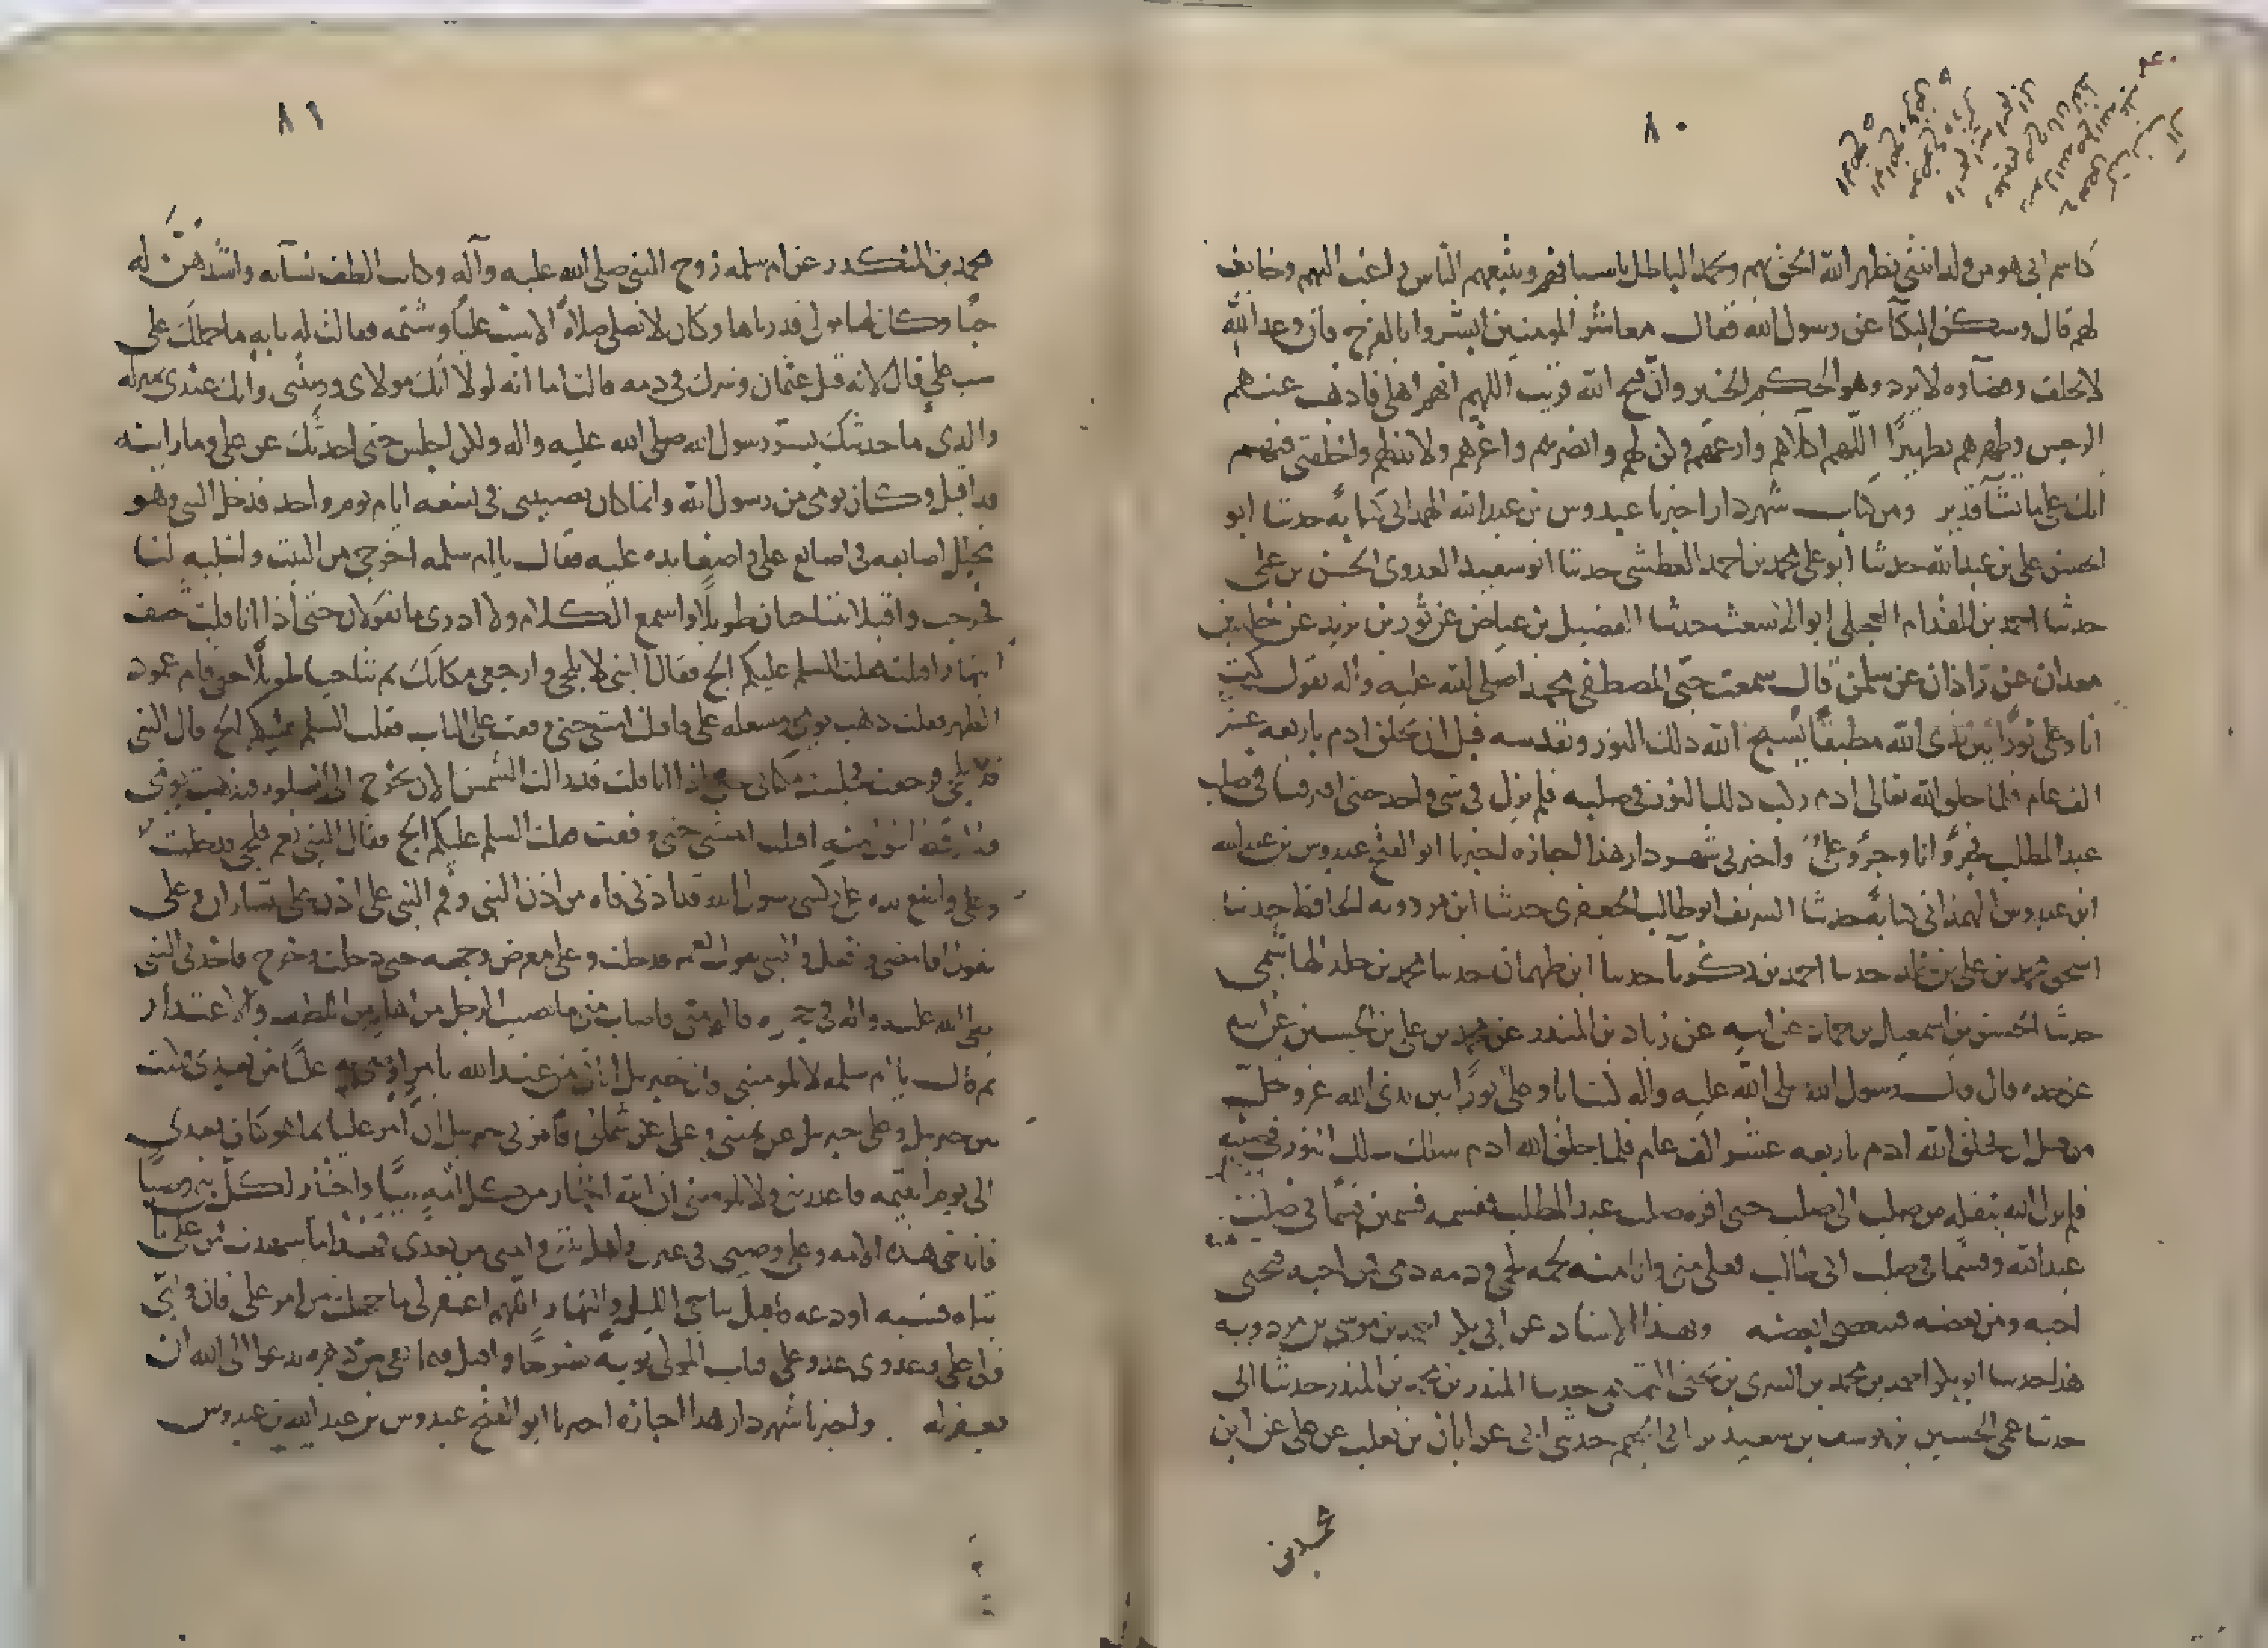 ٨٠
كاسم ابى هو من ولد ابنتى يظهر الله الحق بهم ويخمد الباطل باسيافهم ويتبعهم الناس راغب اليهم وخايف
لهم قال وسكن البكآ عن رسول الله فقال معاشر المومنين ابشروا بالفرج فان وعد الله
لا يخلف وقضآوه لا يرد وهو الحكيم الخبير وان فتح الله قريب اللهم انهم اهلى فاذهب عنهم
الرجس وطهرهم تطهيرًا اللهم اكلاهم وارعهم وكن لهم وانصرهم واعزهم ولا تذلهم واخلفنى فيهم
انك على ما تشآ قدير ومن كتاب شهردار اخبرنا عبدوس بن عبد الله الهمدانى كتابةً حدثنا ابو
الحسن على بن عبد الله حدثنا ابو على محمد بن احمد العطشى حدثنا ابو سعيد العدوى الحسن بن على
حدثنا احمد بن المقدام العجلى ابو الاشعث حدثنا الفضيل بن عياض عن ثور بن يزيد عن خالد بن
معدان عن زاذان عن سلمن قال سمعت حبى المصطفى محمدا صلى الله عليه واله يقول كنت
انا وعلى نورًا بين يدى الله مطبقًا يسبح الله ذلك النور ويقدسه قبل ان يخلق ادم باربعه عشر
الف عام فلما خلق الله تعالى ادم ركب ذلك النور فى صلبه فلم نزل فى شى واحد حتى افترقنا فى صلب
عبد المطلب فجزؤ انا وجزؤ على واخبرنى شهردار هذا اجازه اخبرنا ابو الفتح عبدوس بن عبد الله
ابن عبدوس الهمذانى كتابةً حدثنا الشريف ابو طالب الجعفرى حدثنا ابن مردويه الحافظ حدثنا
اسحق بن محمد بن على بن خالد حدثنا احمد بن زكريا حدثنا ابن طهمان حدثنا محمد بن خالد الهاشمى
حدثنا الحسن بن اسمعيل بن حماد عن ابيه عن زياد بن المنذر عن محمد بن على بن الحسين عن ابيه
عن جده قال قال رسول الله صلى الله عليه واله كنت انا وعلى نورًا بين يدى الله عز وجل
من قبل ان يخلق الله ادم باربعه عشر الف عام فلما خلق الله ادم سلك ذلك النور فى صلبه
فلم يزل الله ينقله من صلب الى صلب حتى اقره صلب عبد المطلب فقسمه قسمين قسمًا فى صلب
عبد الله وقسمًا فى صلب ابى طالب فعلى منى وانا منه لحمه لحمى ودمه دمى فمن احبه فبحبى
احبه ومن بغضه فببغضى ابغضه وبهذا الاسناد عن ابى بكر احمد بن موسى بن مردويه
هذا حدثنا ابو بكر احمد بن محمد بن السرى بن يحيى التميمى حدثنا المنذر بن محمد بن المنذر حدثنا ابى
حدثنا عمى الحسين بن يوسف بن سعيد بن ابى الجهم حدثنى ابى عن ابان بن تغلب عن على عن ابن
محمد بن
٨١
محمد بن المنكدر عن ام سلمه زوج النبى صلى الله عليه وآله وكانت الطف نسآئه واشدهن له
حبًا وكان لها مولى قد رباها وكان لا يصلى صلاةً الا سبّ عليًا وشتمه فقالت له يا ابه ما حملك على
سب على قال لانه قتل عثمان وشرك فى دمه قالت اما انه لولا انك مولاى وربيتنى وانك عندى بمنزله
والدى ما حدثتك بسرّ رسول الله صلى الله عليه واله ولكن اجلس حتى احدثك عن على وما رايته
قد اقبل وكان يومى من رسول الله وانما كان نصيبى فى تسعه ايام يوم واحد فدخل النبى وهو
يخلل اصابعه فى اصابع على واضعًا يده عليه فقال يا ام سلمه اخرجى من البيت واخليه لنا
فخرجت واقبلا يتناجيان طويلًا واسمع الكلام ولا ادرى ما يقولان حتى اذا انا قلت نصف
النهار اقبلت فقلت السلم عليكم الج فقال النبى لا تلجى وارجعى مكانك ثم تناجيا طويلًا حتى قام عمود
الظهر فقلت ذهب يومى وشغله على فاقبلت امشى حتى وقفت على الباب فقلت السلم عليكم الج قال النبى
لا تلجى ورجعت فجلست مكانى حتى اذا انا قلت قد زالت الشمس الان يخرج الى الصلوه فيذهب يومى
اقبلت امشى حتى وقفت فقلت السلم عليكم الج فقال النبى نعم فلجى فدخلت
وعلى واضع يده على ركبتى رسول الله قد ادنى فاه من اذن النبى وفم النبى على اذن على يتساران وعلى
يقول افامضى وافعل والنبى يقول نعم فدخلت وعلى معرض وجهه حتى دخلت وخرج فاخذنى النبى
صلى الله عليه واله فى حجره فالتزمنى فاصاب منى ما يصيب الرجل من اهله من اللطف والاعتذار
ثم قال يا ام سلمه لا تلومينى فان جبريل اتانى من عند الله يامر ان اوصى به عليًا من بعدى وكنت
بين جبريل وعلى جبريل عن يمينى وعلى عن شمالى فامرنى جبريل ان امر عليا بما هو كائن بعدى
الى يوم القيمه فاعذرينى ولا تلومينى ان الله اختار من كل امه نبيًا واختار لكل نبى وصيًا
فانا نبى هذه الامه وعلى وصيى فى عترتى واهل بيتى وامتى من بعدى فهذا ما شهدت من على يا
ابتاه فسبه او دعه فاقبل يناجى الليل والنهار اللهم اغفر لى ما جهلت من امر على فان وليى
ولى على وعدوى عدو على فتاب المولى توبةً نصوحًا واقبل فيما بقى من دهره يدعوا الى الله ان
يغفر له واخبرنا شهردار هذا اجازه اخبرنا ابو الفتح عبدوس بن عبد الله بن عبدوس